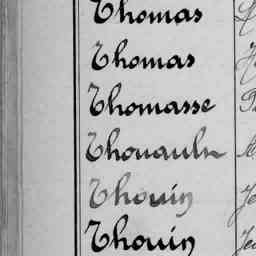 Thomas
Thomas
Thomasse
Thouault
Thouin
Thouin